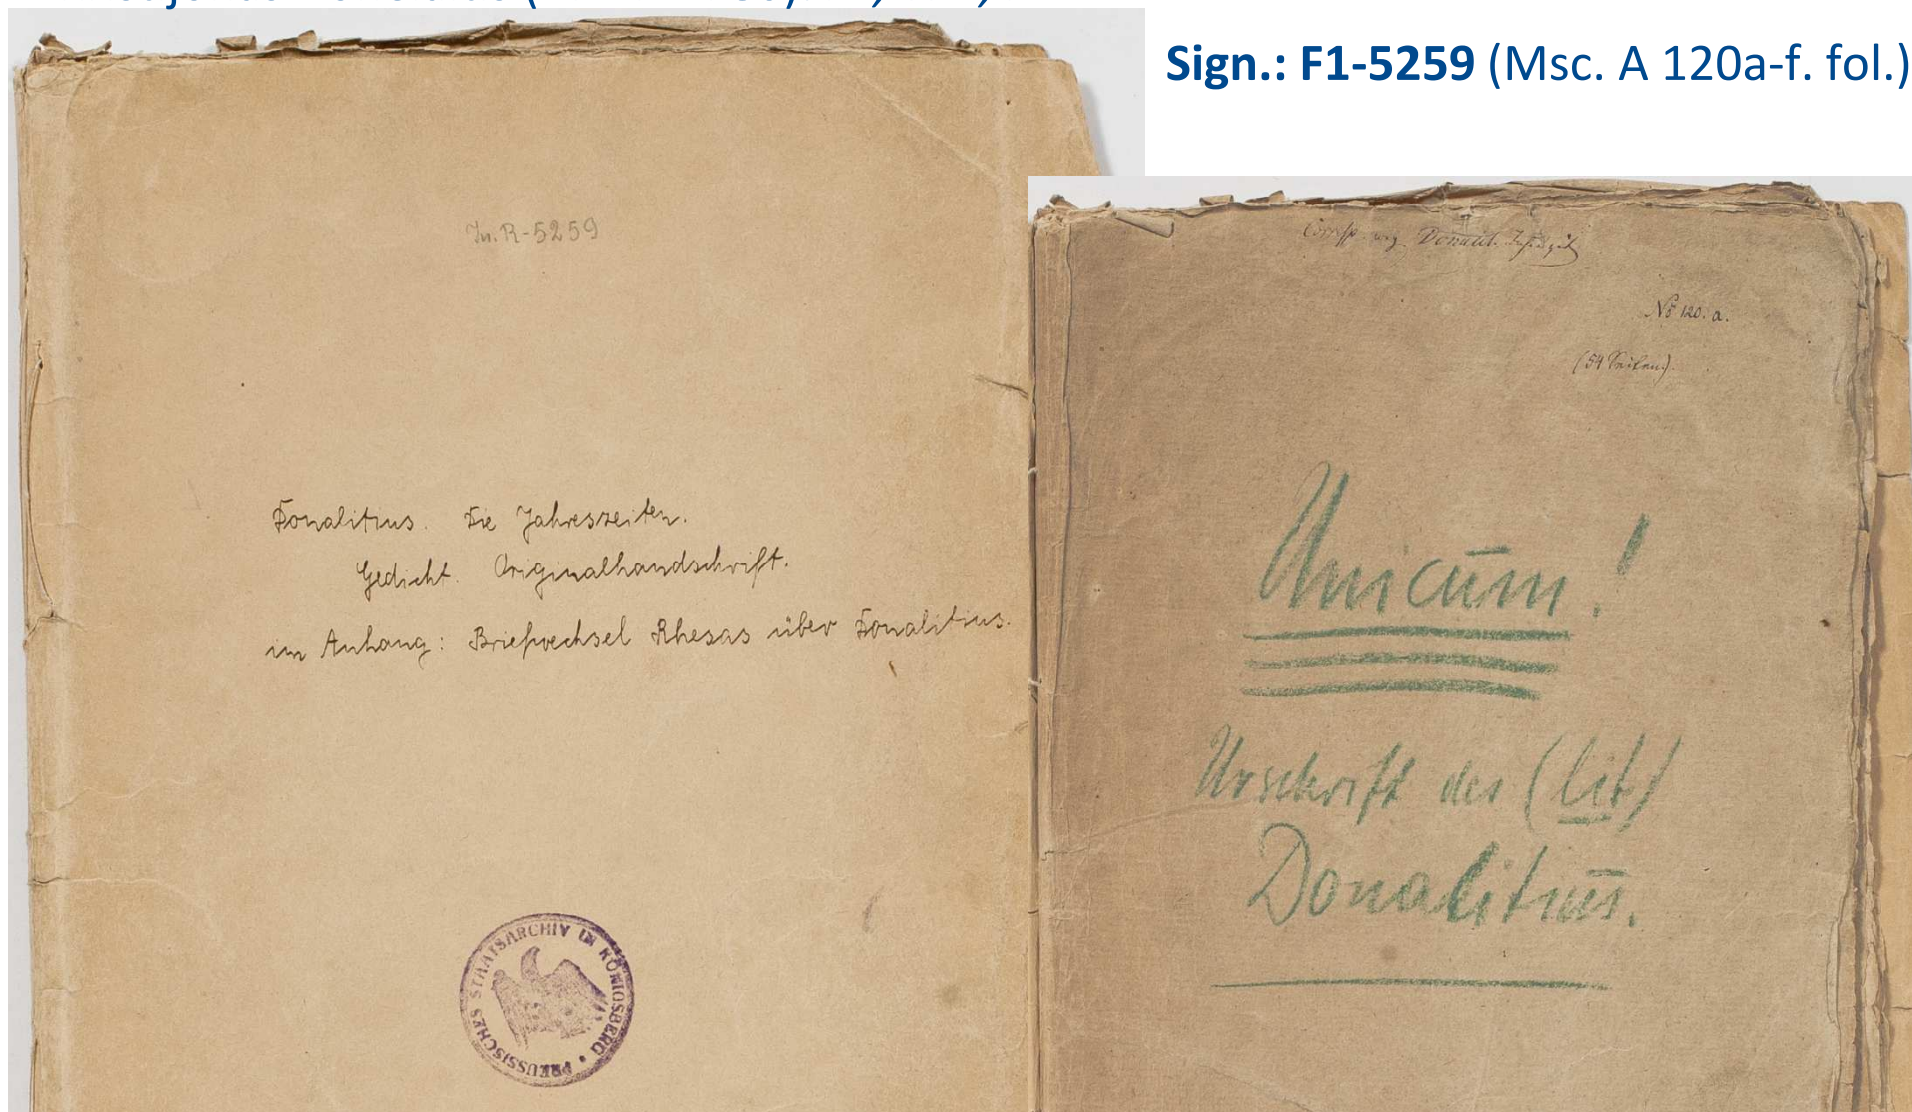 Sign.: F1-5259 (Msc. A 120a-f. fol.)
In. R-5259
Donalitius. Die Jahreszeiten.
Gedicht. Originalhandschrift.
im Anhang: Briefwechsel Rhesas über Donalitius.
PREUSSISCHES STAATSARCHIV IN KÖNIGSBERG
Donalit.
No 120. a.
(54 Seiten).
Unicum!
Urschrift des (lit)
Donalitius.